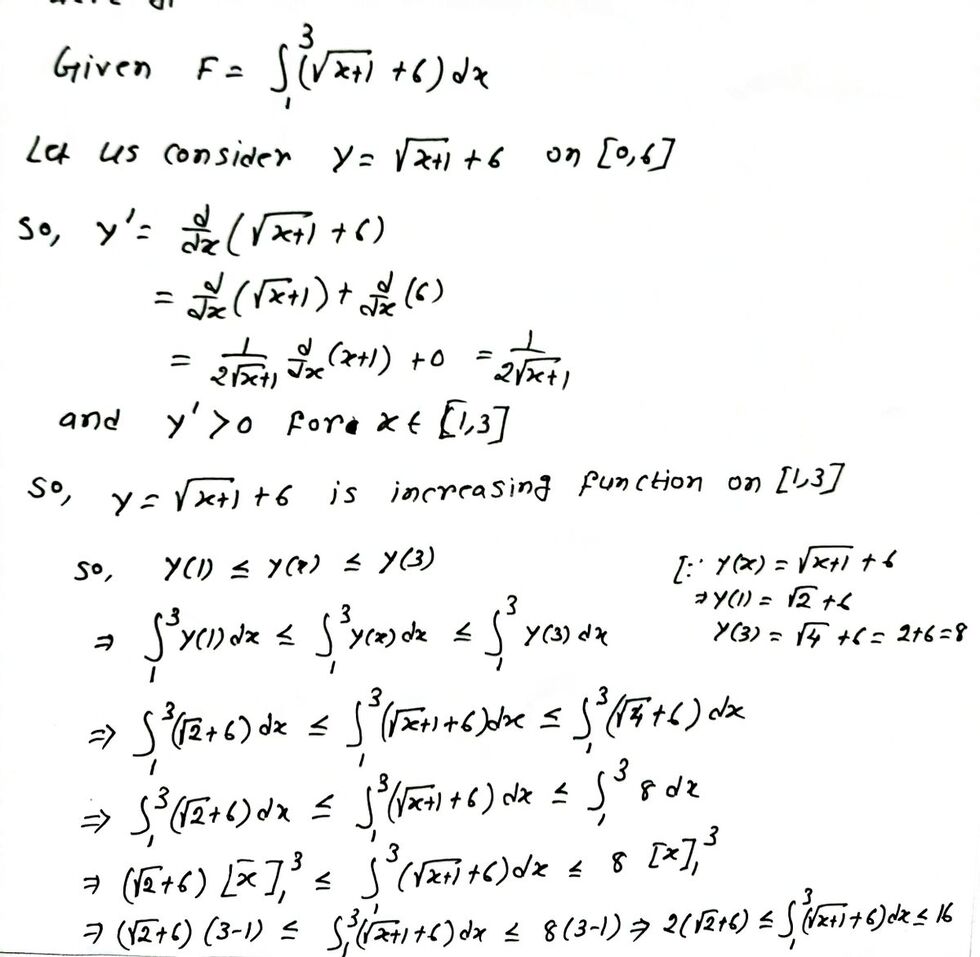 Given F = ∫₁³ (√(x+1) + 6) dx
Let us consider y = √(x+1) + 6 on [0,6]
So, y' = d/dx (√(x+1) + 6)
= d/dx (√(x+1)) + d/dx (6)
= 1/(2√(x+1)) d/dx (x+1) + 0 = 1/(2√(x+1))
and y' > 0 for x ∈ [1,3]
So, y = √(x+1) + 6 is increasing function on [1,3]
So, y(1) ≤ y(x) ≤ y(3) [∵ y(x) = √(x+1) + 6
⇒ y(1) = √2 + 6
⇒ ∫₁³ y(1) dx ≤ ∫₁³ y(x) dx ≤ ∫₁³ y(3) dx y(3) = √4 + 6 = 2+6 = 8
⇒ ∫₁³ (√2+6) dx ≤ ∫₁³ (√(x+1)+6) dx ≤ ∫₁³ (√4+6) dx
⇒ ∫₁³ (√2+6) dx ≤ ∫₁³ (√(x+1)+6) dx ≤ ∫₁³ 8 dx
⇒ (√2+6) [x]₁³ ≤ ∫₁³ (√(x+1)+6) dx ≤ 8 [x]₁³
⇒ (√2+6) (3-1) ≤ ∫₁³ (√(x+1)+6) dx ≤ 8(3-1) ⇒ 2(√2+6) ≤ ∫₁³ (√(x+1)+6) dx ≤ 16